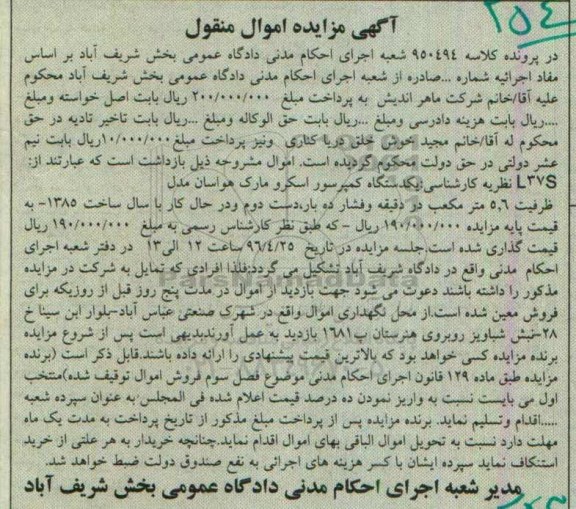 ۲۵۴
آگهی مزایده اموال منقول
در پرونده کلاسه ۹۵۰۴۹۴ شعبه اجرای احکام مدنی دادگاه عمومی بخش شریف آباد بر اساس
مفاد اجرائیه شماره ...صادره از شعبه اجرای احکام مدنی دادگاه عمومی بخش شریف آباد محکوم
علیه آقا/خانم شرکت ماهر اندیش به پرداخت مبلغ ۲۰۰/۰۰۰/۰۰۰ ریال بابت اصل خواسته ومبلغ
....ریال بابت هزینه دادرسی ومبلغ ...ریال بابت حق الوکاله ومبلغ ...ریال بابت تاخیر تادیه در حق
محکوم له آقا/خانم مجید خوش خلق دریا کناری ونیز پرداخت مبلغ ۱۰/۰۰۰/۰۰۰ریال بابت نیم
عشر دولتی در حق دولت محکوم گردیده است. اموال مشروحه ذیل بازداشت است که عبارتند از:
L۳۷S نظریه کارشناسی:یکدستگاه کمپرسور اسکرو مارک هواسان مدل
ظرفیت ۵,۶ متر مکعب در دقیقه وفشار ده بار،دست دوم ودر حال کار با سال ساخت ۱۳۸۵- به
قیمت پایه مزایده ۱۹۰/۰۰۰/۰۰۰ ریال – که طبق نظر کارشناس رسمی به مبلغ ۱۹۰/۰۰۰/۰۰۰ ریال
قیمت گذاری شده است.جلسه مزایده در تاریخ ۹۶/۴/۲۵ ساعت ۱۲ الی۱۳ در دفتر شعبه اجرای
احکام مدنی واقع در دادگاه شریف آباد تشکیل می گردد:فلذا افرادی که تمایل به شرکت در مزایده
مذکور را داشته باشند دعوت می شود جهت بازدید از اموال در مدت پنج روز قبل از روزیکه برای
فروش معین شده است.از محل نگهداری اموال واقع در شهرک صنعتی عباس آباد-بلوار ابن سینا خ
۲۸-نبش شباویز روبروی هنرستان پ۱۶۸۱ بازدید به عمل آورندبدیهی است پس از شروع مزایده
برنده مزایده کسی خواهد بود که بالاترین قیمت پیشنهادی را ارائه داده باشند.قابل ذکر است (برنده
مزایده طبق ماده ۱۲۹ قانون اجرای احکام مدنی موضوع فصل سوم فروش اموال توقیف شده)منتخب
اول می بایست نسبت به واریز نمودن ده درصد قیمت اعلام شده فی المجلس به عنوان سپرده شعبه
.....اقدام وتسلیم نماید. برنده مزایده پس از پرداخت مبلغ مذکور از تاریخ پرداخت به مدت یک ماه
مهلت دارد نسبت به تحویل اموال الباقی بهای اموال اقدام نماید.چنانچه خریدار به هر علتی از خرید
استنکاف نماید سپرده ایشان با کسر هزینه های اجرائی به نفع صندوق دولت ضبط خواهد شد.
مدیر شعبه اجرای احکام مدنی دادگاه عمومی بخش شریف آباد